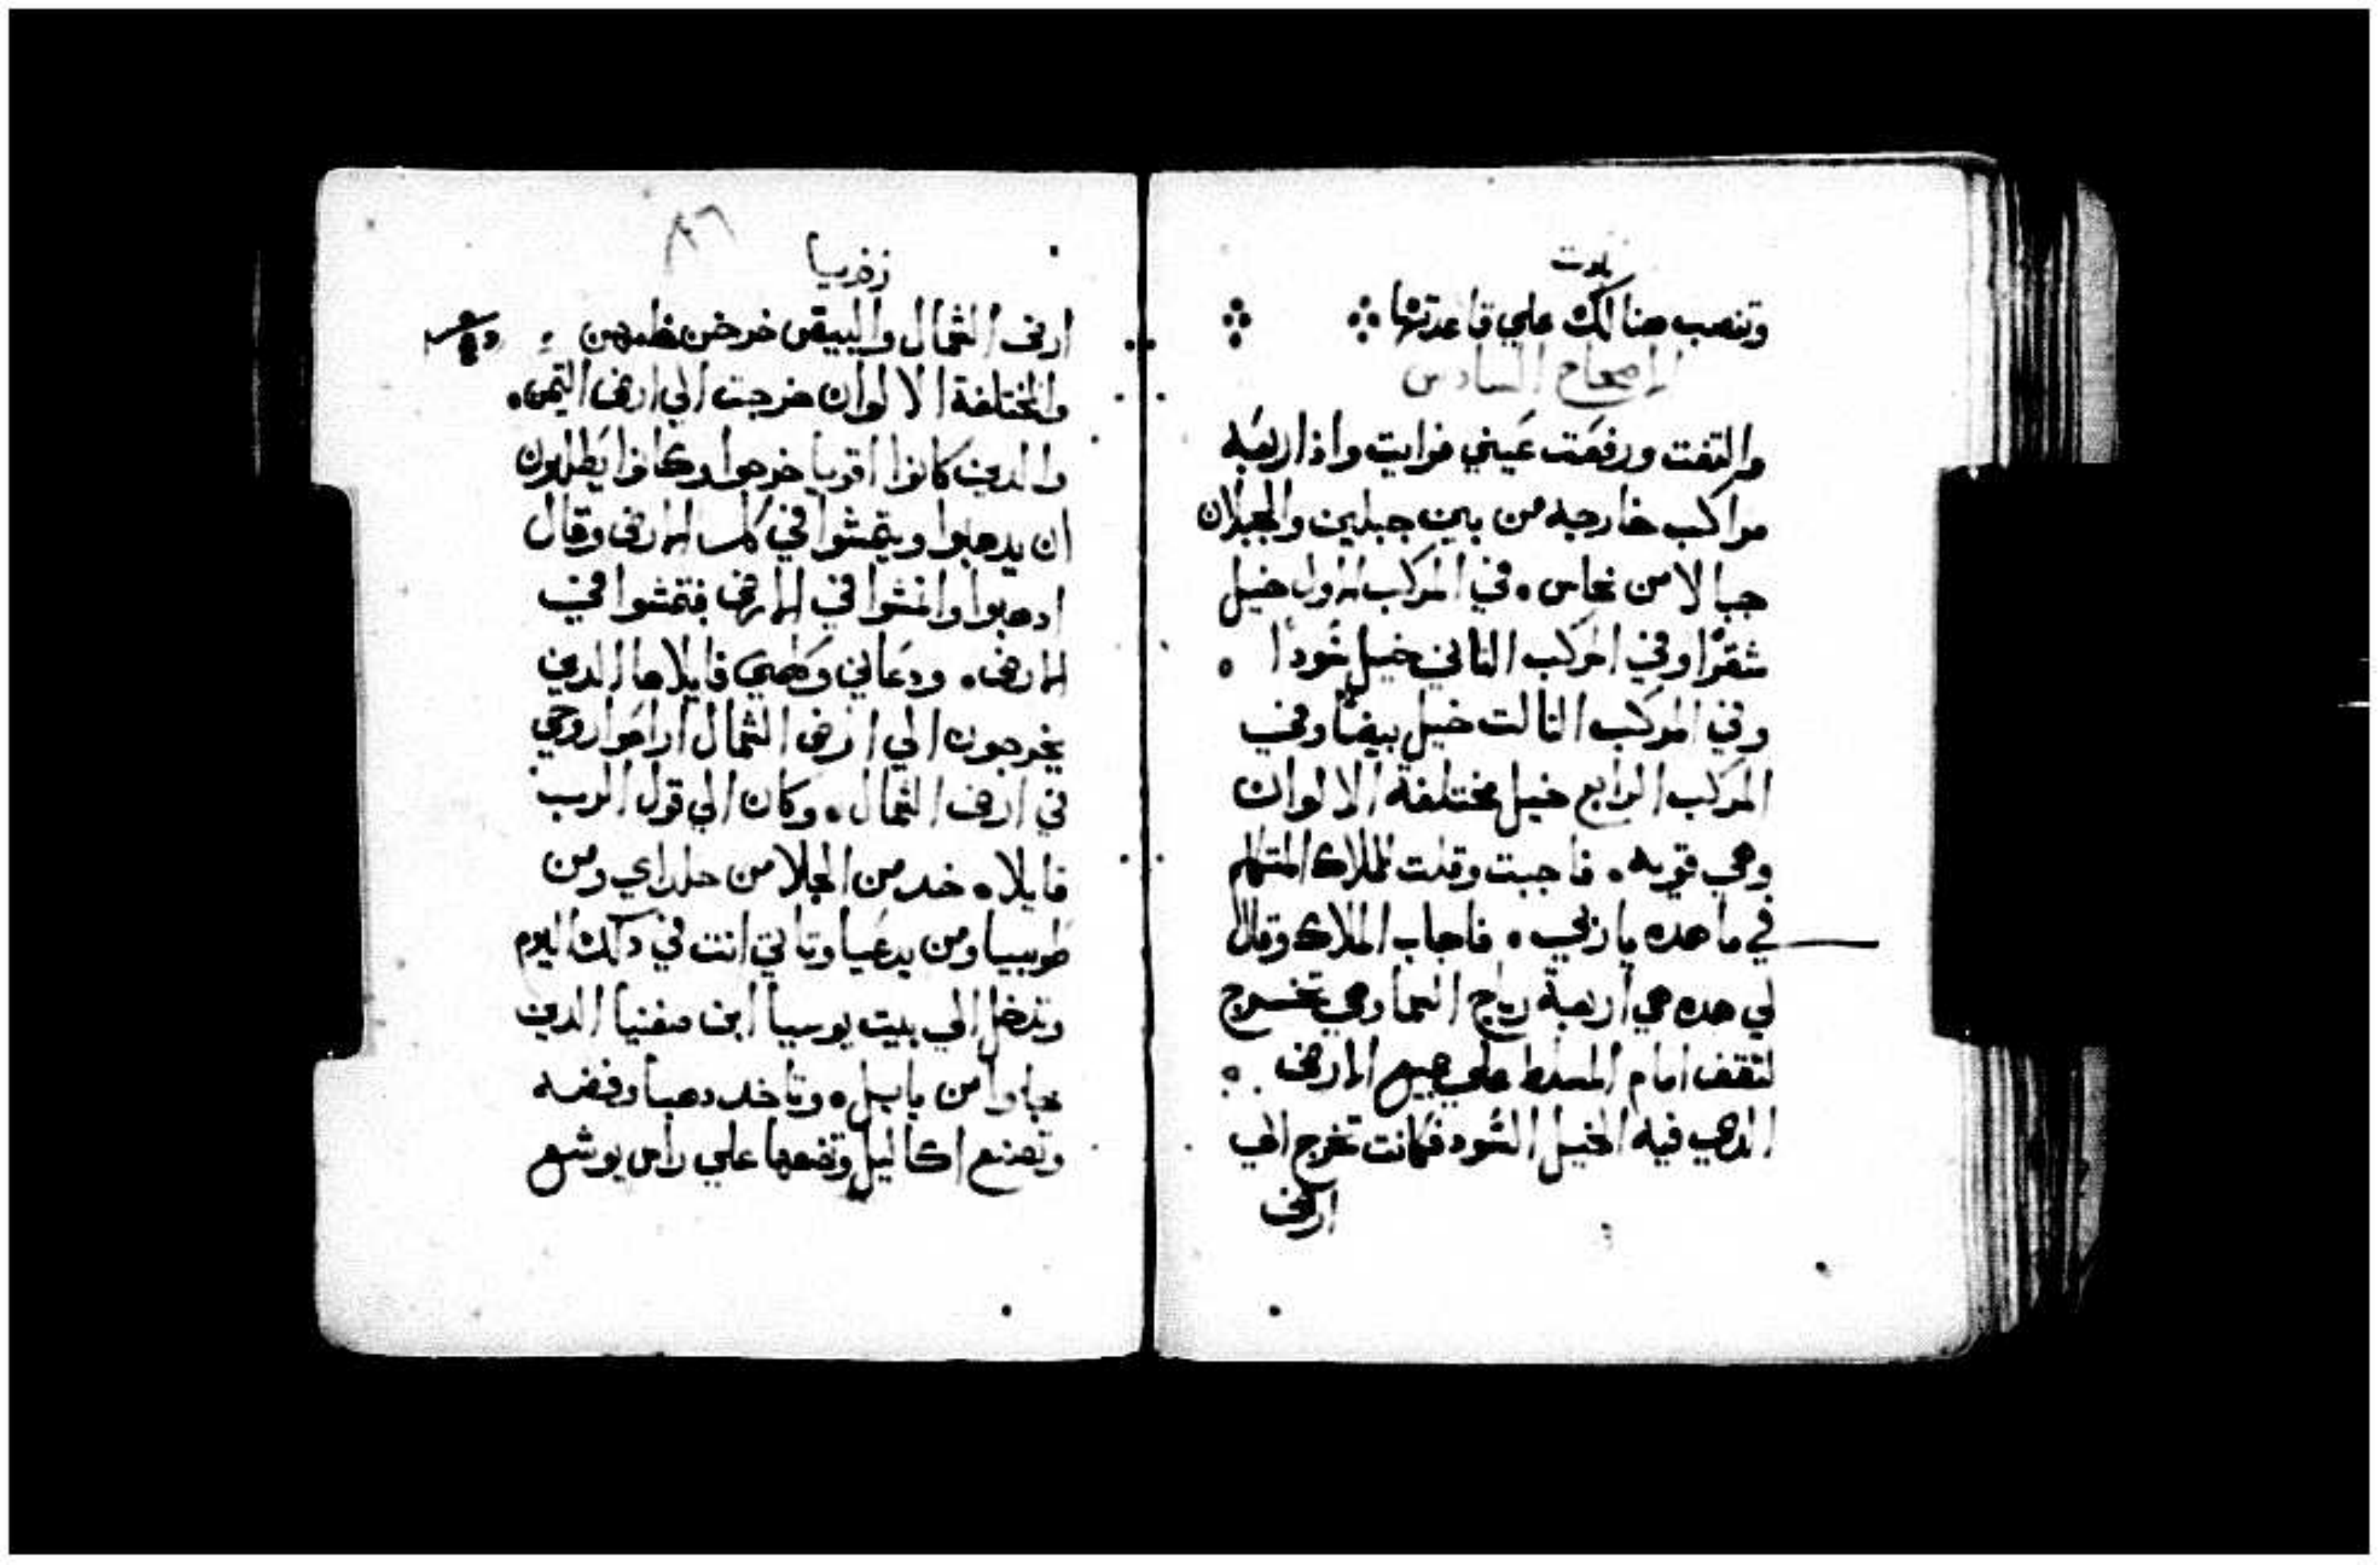 وتنصب هنالك علي قاعدتها
الاصحاح السادس
والتفت ورفعت عيني فرايت واذا اربعه
مراكب خارجه من بين جبلين والجبلان
جبالا من نحاس. في المركب الاول خيل
شقرا وفي المركب التاني خيل سودا
وفي المركب التالت خيل بيضا وفي
المركب الرابع خيل مختلفة الالوان
وهي قويه. فاجبت وقلت للملاك المتكلم
في ما هده يا ربي. فاجاب الملاك وقال
لي هده هي اربعة رياح السما وهي تخرج
لتقف امام المسلط علي جميع الارض.
الدهي فيه الخيل السود فكانت تخرج الي
ارض
زخريا
٨٦
ارض الشمال والبيض خرجن خلفهن
والمختلفة الالوان خرجت الي ارض التيمن.
والدين كانوا اقويا خرجوا وكانوا يطلبون
ان يدهبوا ويتمشوا في كل الارض وقال
ادهبوا وامشوا في الارض فتمشوا في
الارض. ودعاني وكلمني قايلا ها الدين
يخرجون الي ارض الشمال اراحوا روحي
في ارض الشمال. وكان الي قول الرب
قايلا. خد من الجلا من حلداي ومن
طوبيا ومن يدعيا وتاتي انت في دلك اليوم
وتدخل الي بيت يوسيا ابن صفنيا الدين
جاوا من بابل. وتاخد دهبا وفضه
وتصنع اكاليل وتضعها علي راس يوشع